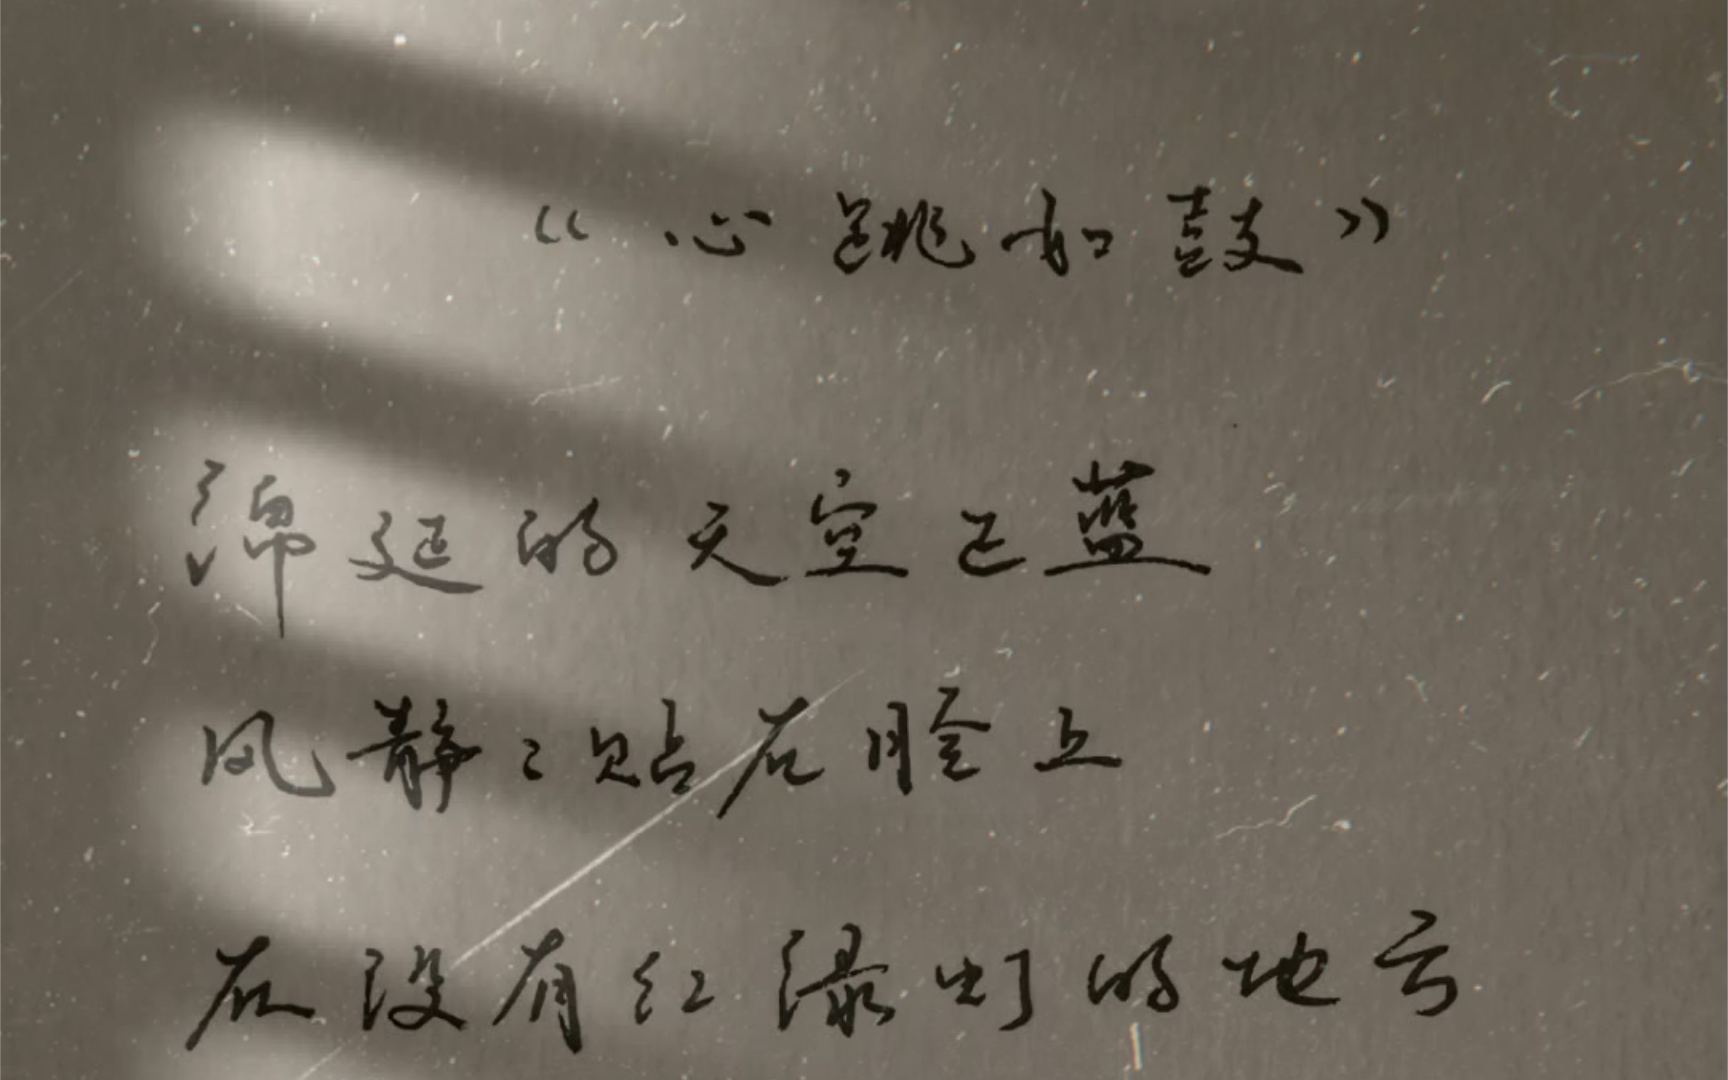 《心跳如鼓》
绵延的天空正蓝
风静々贴在脸上
在没有红绿灯的地方